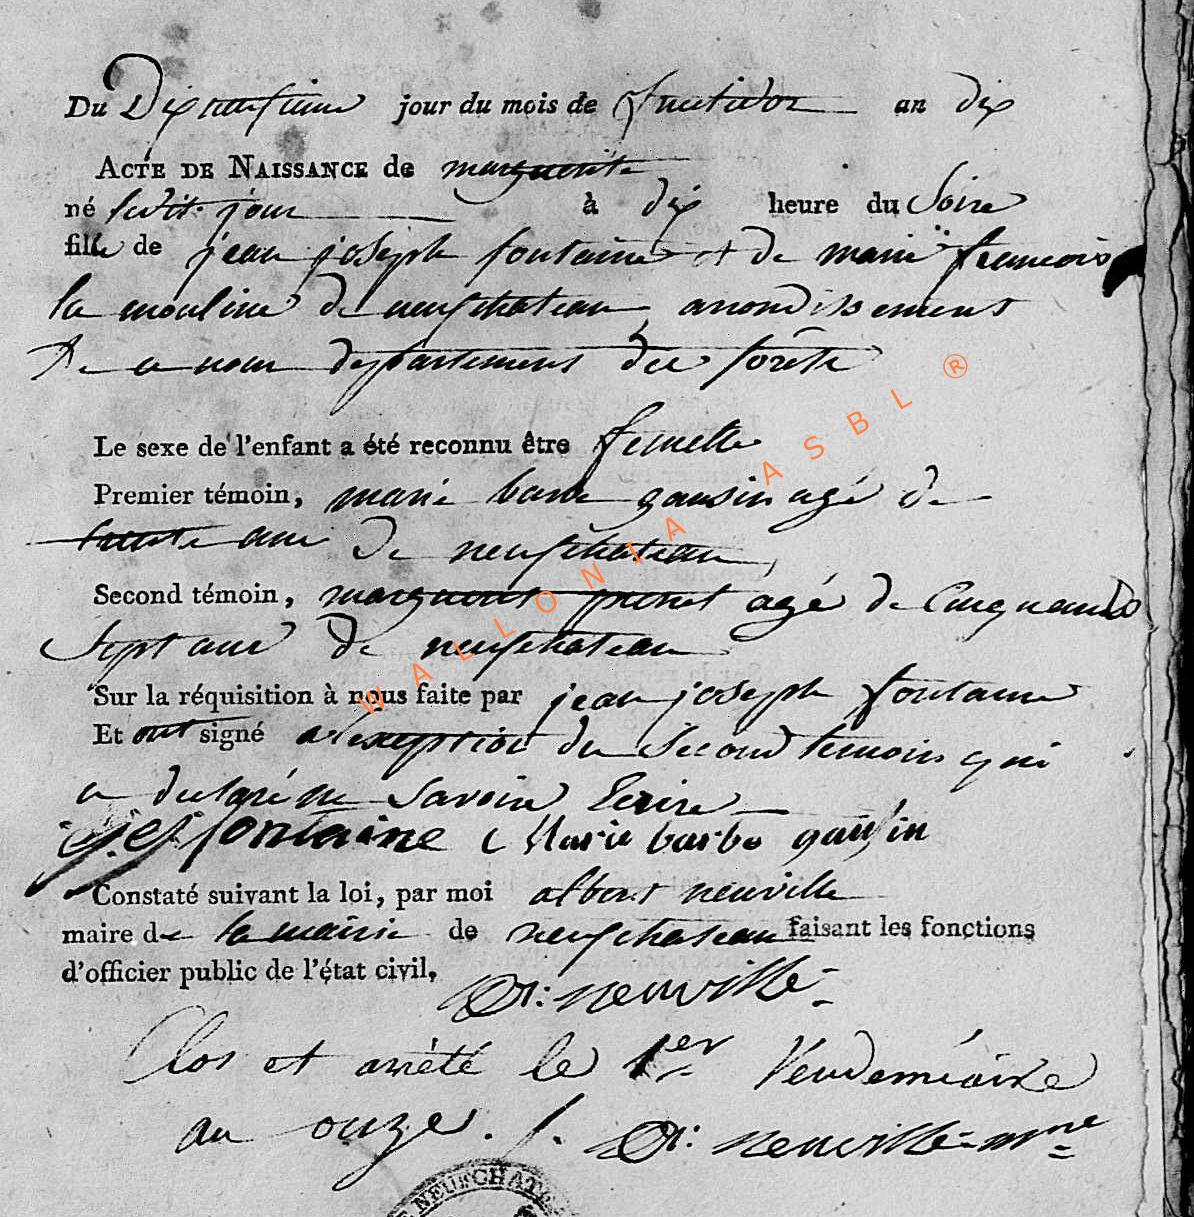 Du Dixneufieme jour du mois de fructidor an dix
ACTE DE NAISSANCE de marguerite
né ledit jour à dix heure du Soire
fille de jean joseph fontaine et de marie francois
la mouline de neufchateau arrondissement
De ce nom departement des forêts
Le sexe de l'enfant a été reconnu être femelle
Premier témoin, marie barbe gausin agé de
trente ans de neufchateau
Second témoin, marguerite agé de Cinquante
Sept ans de neufchateau
Sur la réquisition à nous faite par jean joseph fontaine
Et ont signé a lexeption du Second temoin qui
a declaré ne Savoire Ecrire
fontaine Marie barbe gausin
Constaté suivant la loi, par moi albert neuville
maire de la mairie de neufchateau faisant les fonctions
d'officier public de l'état civil,
neuville
Clos et arrêté le 1er Vendemiaire
an onze.
neuville mre
NEUFCHATE
WALLONIA ASBL ®